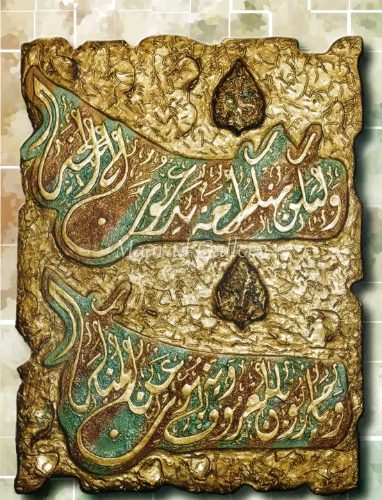 ولتكن منكم امة يدعون الى الخير
ويأمرون بالمعروف وينهون عن المنكر